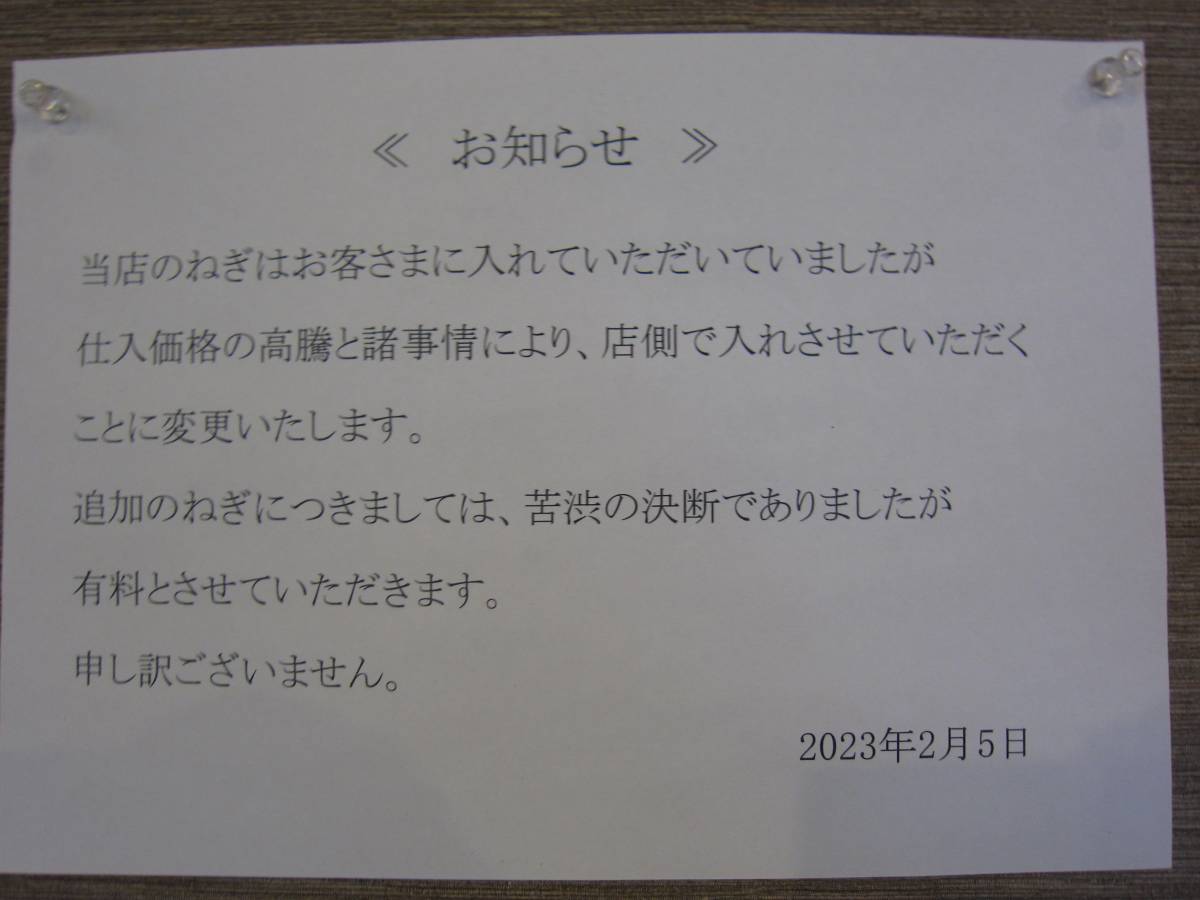 ≪ お知らせ ≫
当店のねぎはお客さまに入れていただいていましたが
仕入価格の高騰と諸事情により、店側で入れさせていただく
ことに変更いたします。
追加のねぎにつきましては、苦渋の決断でありましたが
有料とさせていただきます。
申し訳ございません。
2023年2月5日